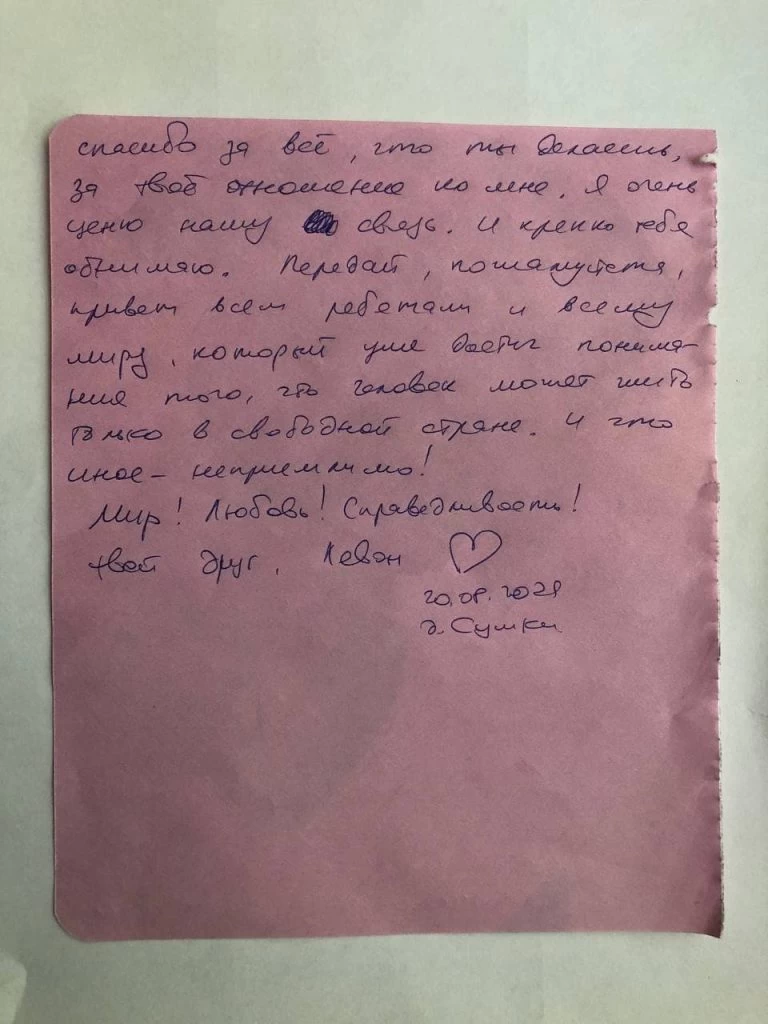 спасибо за всё, что ты делаешь,
за твоё отношение ко мне. Я очень
ценю нашу связь. И крепко тебя
обнимаю. Передай, пожалуйста,
привет всем ребятам и всему
миру, который уже достиг понима-
ния того, что человек может жить
только в свободной стране. И это
иное – неприемлимо!
Мир! Любовь! Справедливость!
твой друг, Леван ♡
20.08.2021
д. Сумки